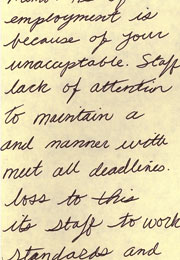 employment is
because of your
unacceptable. Staff
lack of attention
to maintain a
and manner with
meet all deadlines.
loss to this
its staff to work
standards and